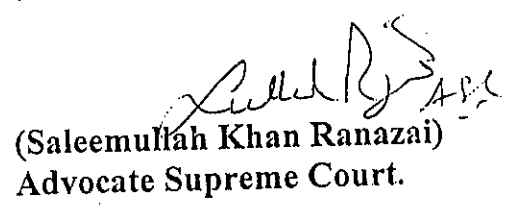 ASC
(Saleemullah Khan Ranazai)
Advocate Supreme Court.